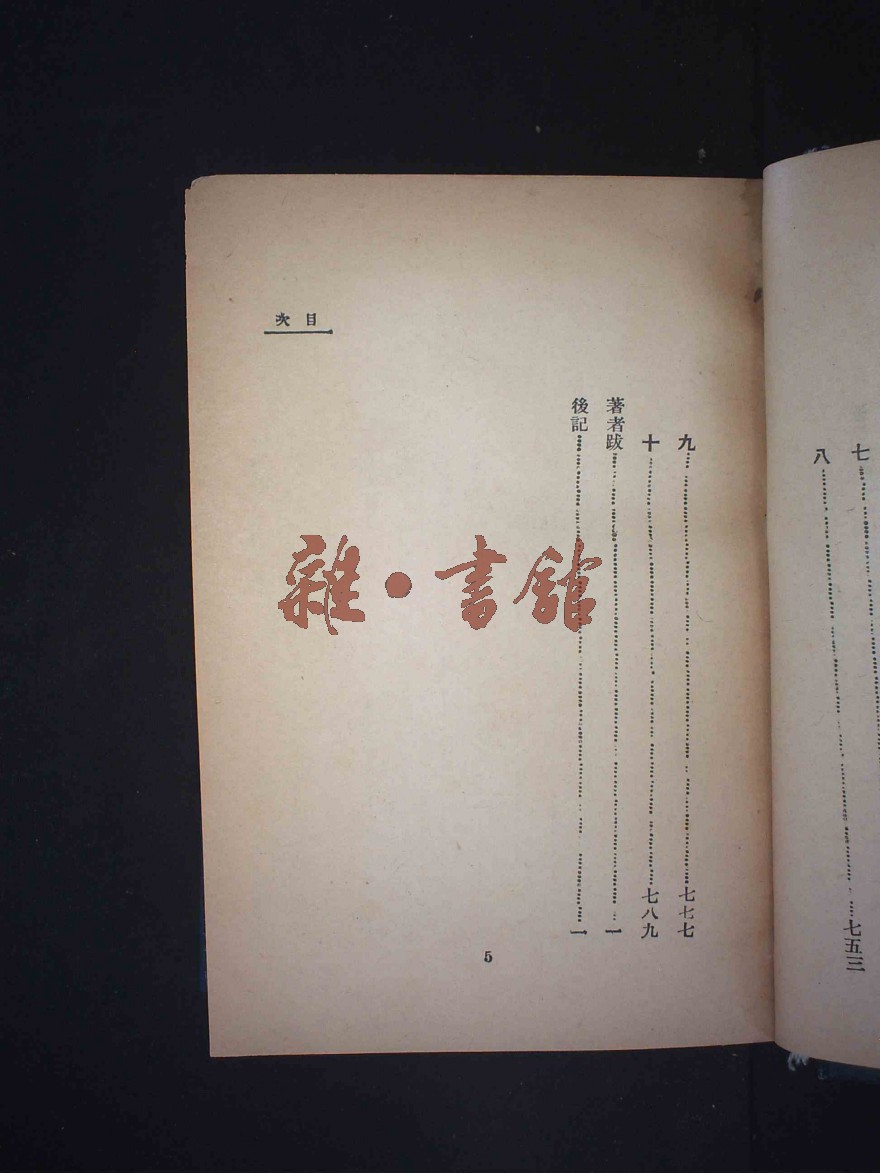 七
八……七五三
目次
九……七七七
十……七八九
著者跋……一
後記……一
5
雜·書館